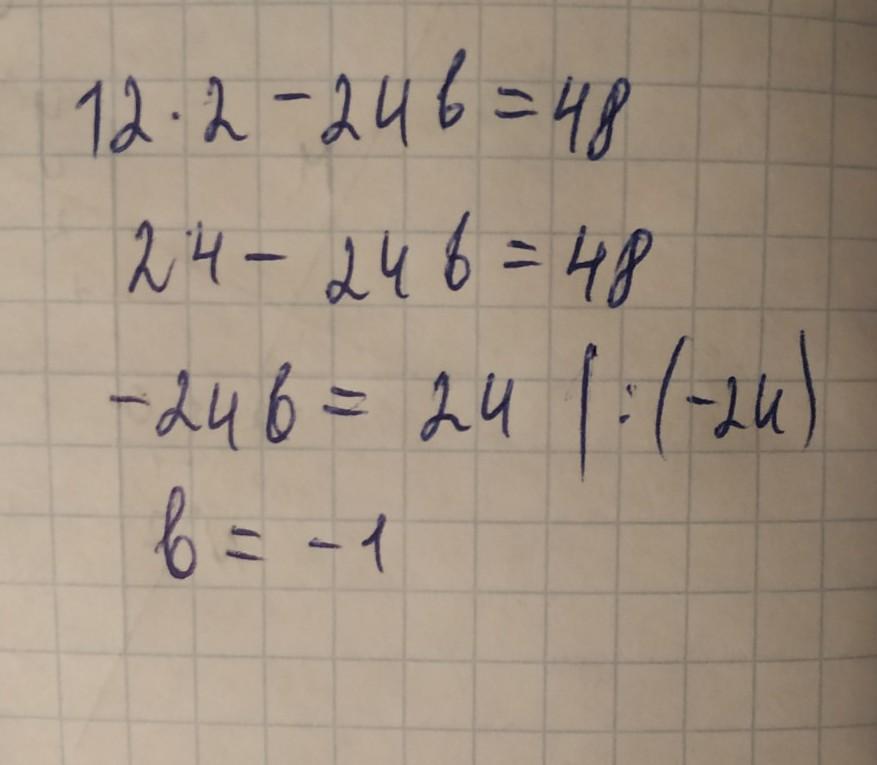 12 · 2 - 24b = 48
24 - 24b = 48
-24b = 24 | : (-24)
b = -1